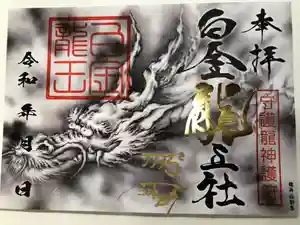 奉拝
守護龍神護
白金龍王社
白金
龍王
令和 年 月 日